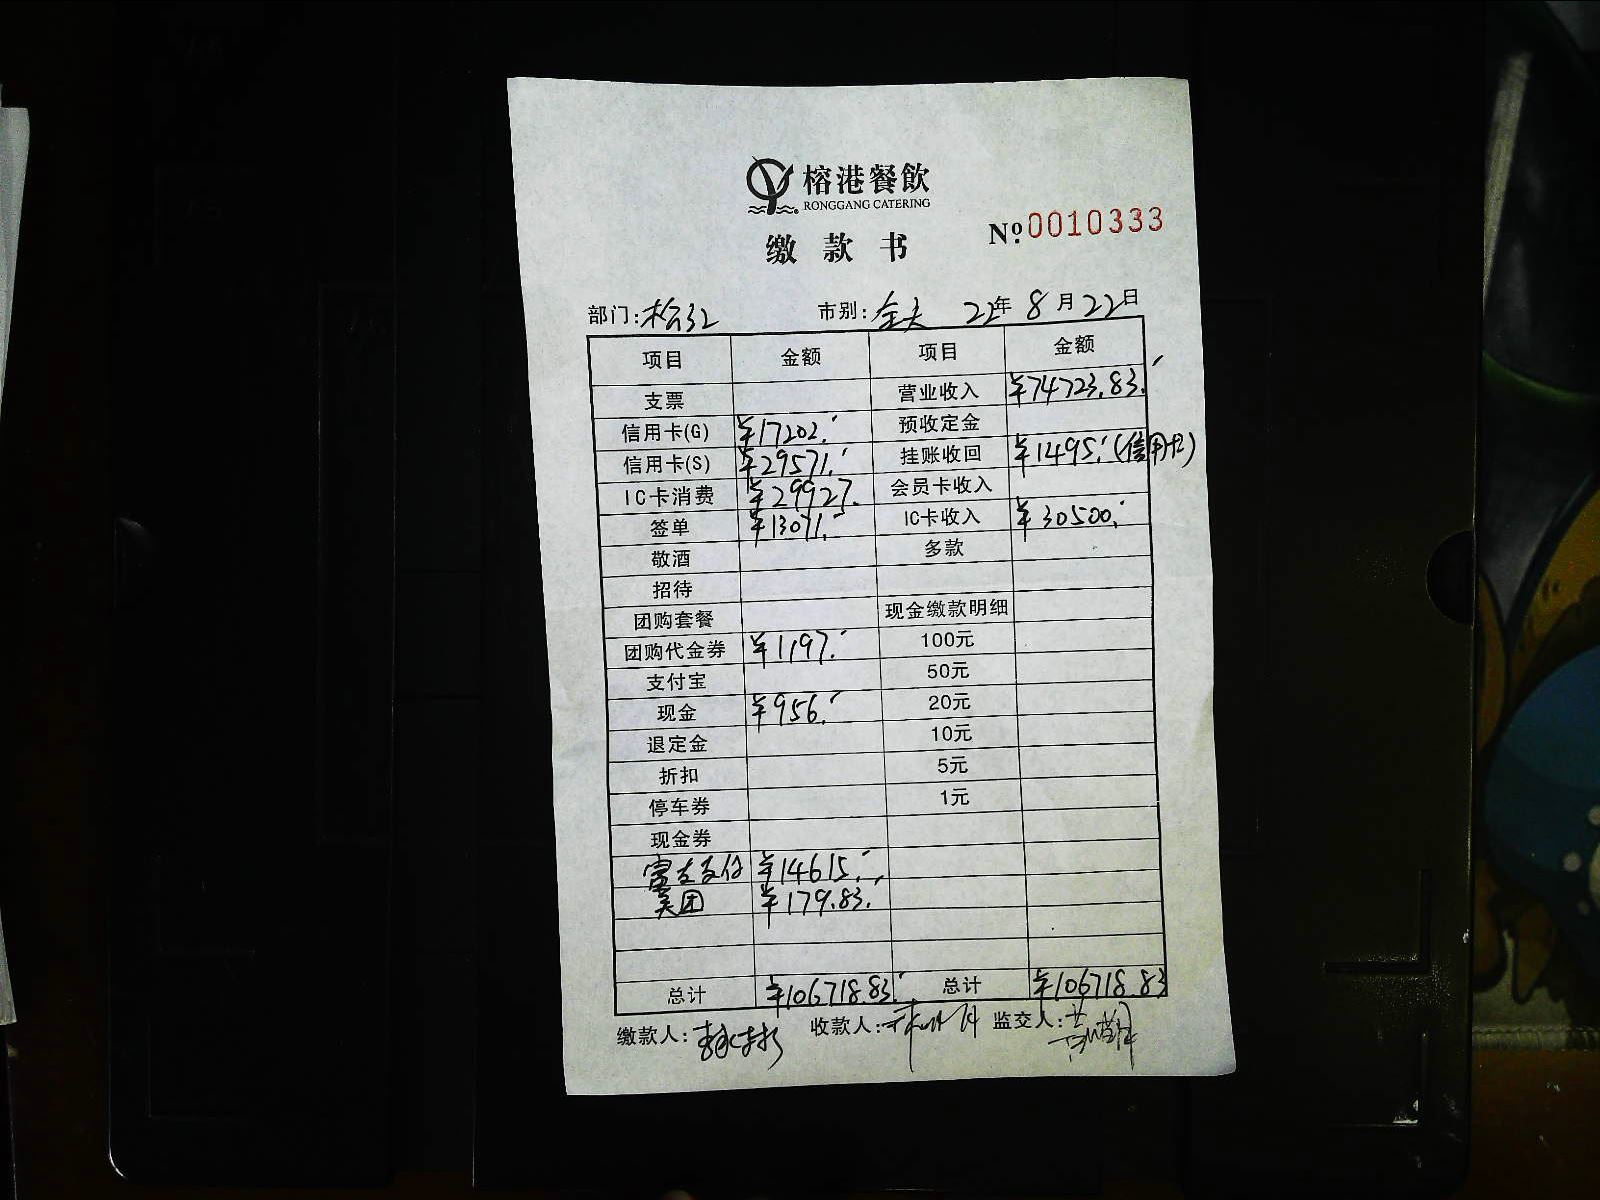 榕港餐飲
RONGGANG CATERING
缴款书
No.0010333
部门:松江 市别:全天 22年8月22日
项目 金额 项目 金额
支票 营业收入 ¥74723.83.
信用卡(G) ¥17202. 预收定金
信用卡(S) ¥29571. 挂账收回 ¥1495.(信用卡)
IC卡消费 ¥29927. 会员卡收入
签单 ¥13071. IC卡收入 ¥30500.
敬酒 多款
招待
团购套餐 现金缴款明细
团购代金券 ¥1197. 100元
支付宝 50元
现金 ¥956. 20元
退定金 10元
折扣 5元
停车券 1元
现金券
富友支付 ¥14615.
美团 ¥179.83.
总计 ¥106718.83. 总计 ¥106718.83
缴款人: 收款人: 监交人: